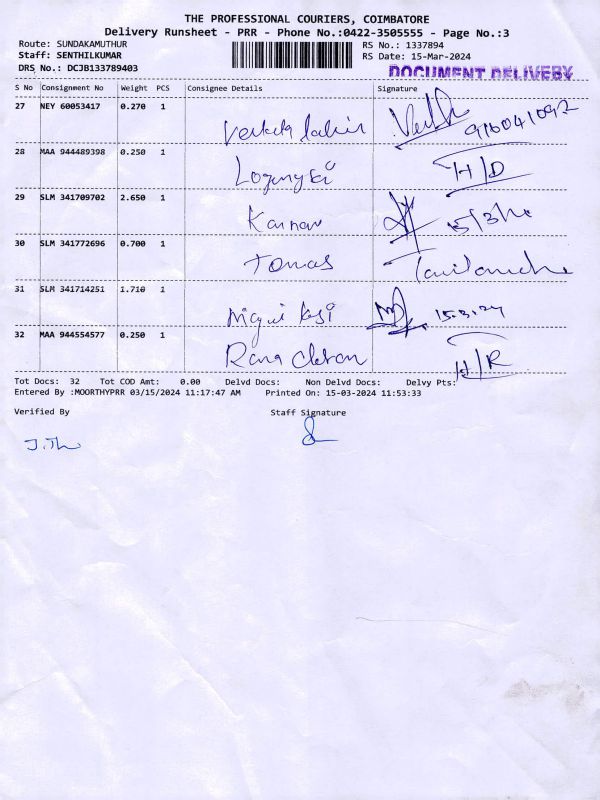 THE PROFESSIONAL COURIERS, COIMBATORE
Delivery Runsheet - PRR - Phone No.:0422-3505555 - Page No.:3
Route: SUNDAKAMUTHUR
RS No.: 1337894
Staff: SENTHILKUMAR
RS Date: 15-Mar-2024
DRS No.: DCJB133789403
DOCUMENT DELIVERY
S No Consignment No Weight PCS Consignee Details Signature
27 NEY 60053417 0.270 1
28 MAA 944489398 0.250 1 H/D
29 SLM 341709702 2.650 1 Kannan
30 SLM 341772696 0.700 1 Tomas
31 SLM 341714251 1.710 1 15.3.24
32 MAA 944554577 0.250 1 H/R
Tot Docs: 32 Tot COD Amt: 0.00 Delvd Docs: Non Delvd Docs: Delvy Pts:
Entered By :MOORTHYPRR 03/15/2024 11:17:47 AM Printed On: 15-03-2024 11:53:33
Verified By Staff Signature